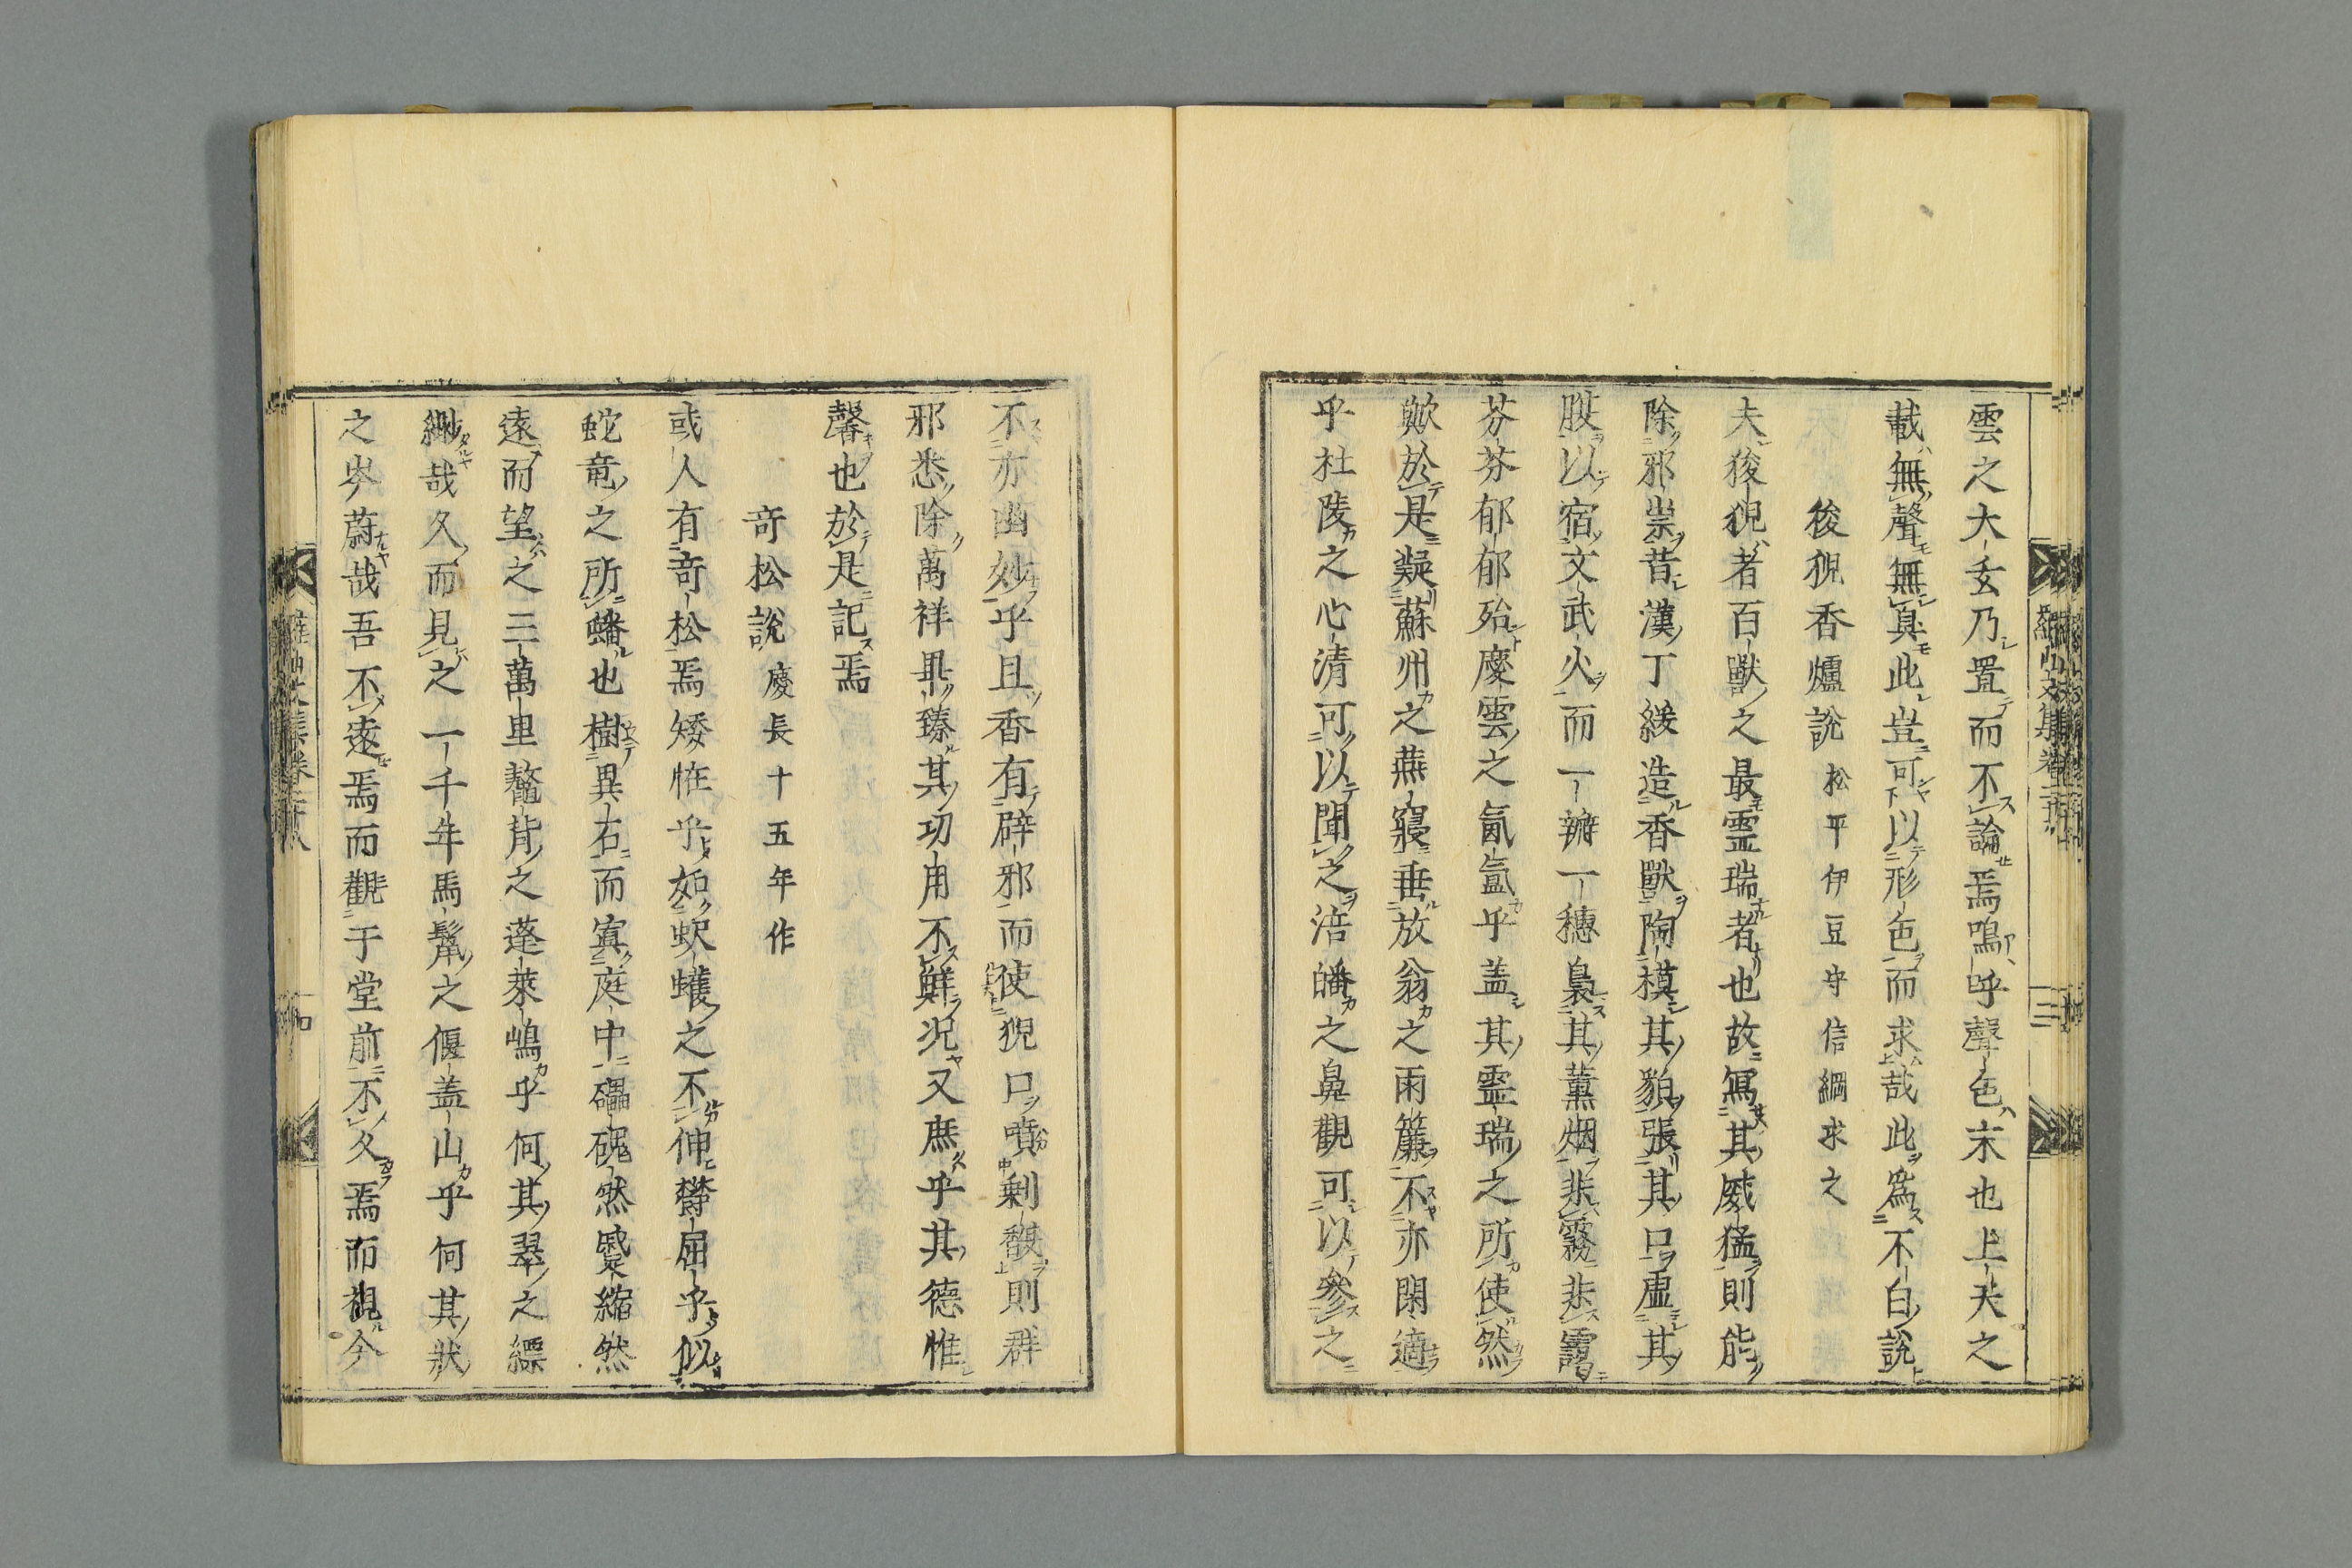 雲之大去乃置而不論焉嗚呼聲色末也上天之
載無聲無臭此豈可以形色而求哉此爲不白說
狻猊香爐說 松平伊豆守信綱求之
夫狻猊者百獸之最霊瑞者也故冩其威猛則能
除邪祟昔漢丁緩造香獸陶模其貌張其口虛其
腹以宿文武火而一瓣一穗裊其薰烟非霧非靄
芬芬郁郁殆慶雲之氤氳乎盖其霊瑞之所使然
歟於是凝蘇州之燕寢垂放翁之雨簾不亦閑適
乎杜陵之心清可以聞之涪皤之鼻觀可以參之
不亦幽妙乎且香有辟邪而使猊口噴剩馥則群
邪悉除萬祥畢臻其功用不鮮况又庶乎其德惟
馨也於是記焉
奇松說 慶長十五年作
或人有奇松焉矮恠乎如蚇蠖之不伸欝屈乎似
蛇竜之所蟠也樹異右而寘庭中礧磈然蹙縮然
遠而望之三萬里鼇背之蓬萊嶋乎何其翠之縹
緲哉久而見之一千年馬鬣之偃盖山乎何其狀
之岑蔚哉吾不遠焉而觀于堂前不久焉而覩今